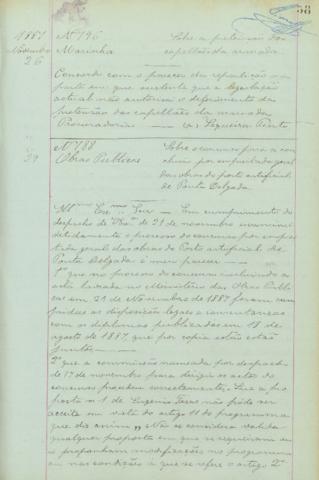 38
1887 Nº 196 Sobre a pretensão dos
Novembro Marinha capellães da armada
26
Concordo com o parecer da repartição na
parte em que sustenta que a legislação
actual não autorisa o deferimento da
pretensão dos capellães da armada
Procuradoria — (a) Sequeira Pinto
Nº 188 Sobre o concurso para a con
29 Obras Publicas clusão por empreitada geral
das obras do porto artificial
de Ponta Delgada.
Ill.mo Ex.mo Snr — Em cumprimento do
despacho de V. Ex.ª de 21 de novembro examinei
detidamente o processo do concurso por emprei
tada geral das obras do Porto artificial de
Ponta Delgada é meu parecer —
1º que no processo do concurso incluindo a
acta lavrada no Ministerio das Obras Publi
cas em 21 de Novembro de 1887 foram cum
pridas as disposições legaes e consentaneas
com os diplomas publicados em 18 de
agosto de 1887, que por copia estão
juntos —
2º que a commissão nomeada por despacho
de 17 de novembro para dirigir os actos do
concurso procedeu correctamente. Que a pro
posta nº 1 de Eugenio não póde ser
acceite em vista do artigo 11 do programma
que diz assim "Não se considera valida
qualquer proposta em que se requeiram ou
se proponham modificações no programma
ou nas condições a que se refere o artigo 2º